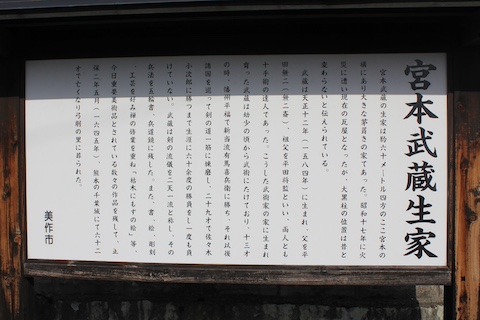 宮本武蔵生家
宮本武蔵の生家は約六十メートル四方のここ宮本の
構にあり大きな茅葺きの家であった。昭和十七年に火
災に遭い現在の瓦屋となったが、大黒柱の位置は昔と
変わらないと伝えられている。
武蔵は天正十二年(一五八四年)に生まれ、父を平
田無二(無二斎)、祖父を平田将監といい、両人とも
十手術の達人であった。こうした武術家の家に生まれ
育った武蔵は幼少の頃から武術にたけており、十三才
の時、播州平福で新当流有馬喜兵衛に勝ち、それ以後
諸国を巡って剣の道一筋に練磨し、二十九才で佐々木
小次郎に勝つまで生涯に六十余度の勝負をし一度も負
けていない。武蔵は剣の流儀を二天一流と称し、その
兵法を五輪書、兵道鏡に残した。また、書、絵、彫刻
、工芸を好み禅の修業を重ね「枯木にもずの絵」等、
今日重要美術品とされている数々の作品を残して、正
保二年五月(一六四五年)、熊本の千葉城にて六十二
才で亡くなり弓削の里に葬られた。
美作市